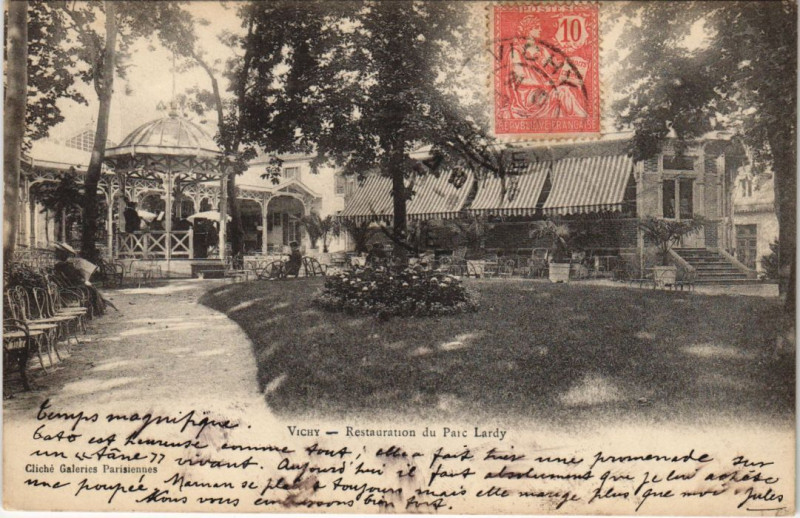 POSTES
10
VICHY
RÉPUBLIQUE FRANÇAISE
VICHY — Restauration du Parc Lardy
Temps magnifique.
Toto est heureuse comme tout ; elle a fait hier une promenade sur
un "âne" vivant. Aujourd'hui il faut absolument que je lui achète
Cliché Galeries Parisiennes
une poupée. Maman se plaît toujours mais elle mange plus que moi Jules
Nous vous embrassons bien fort.